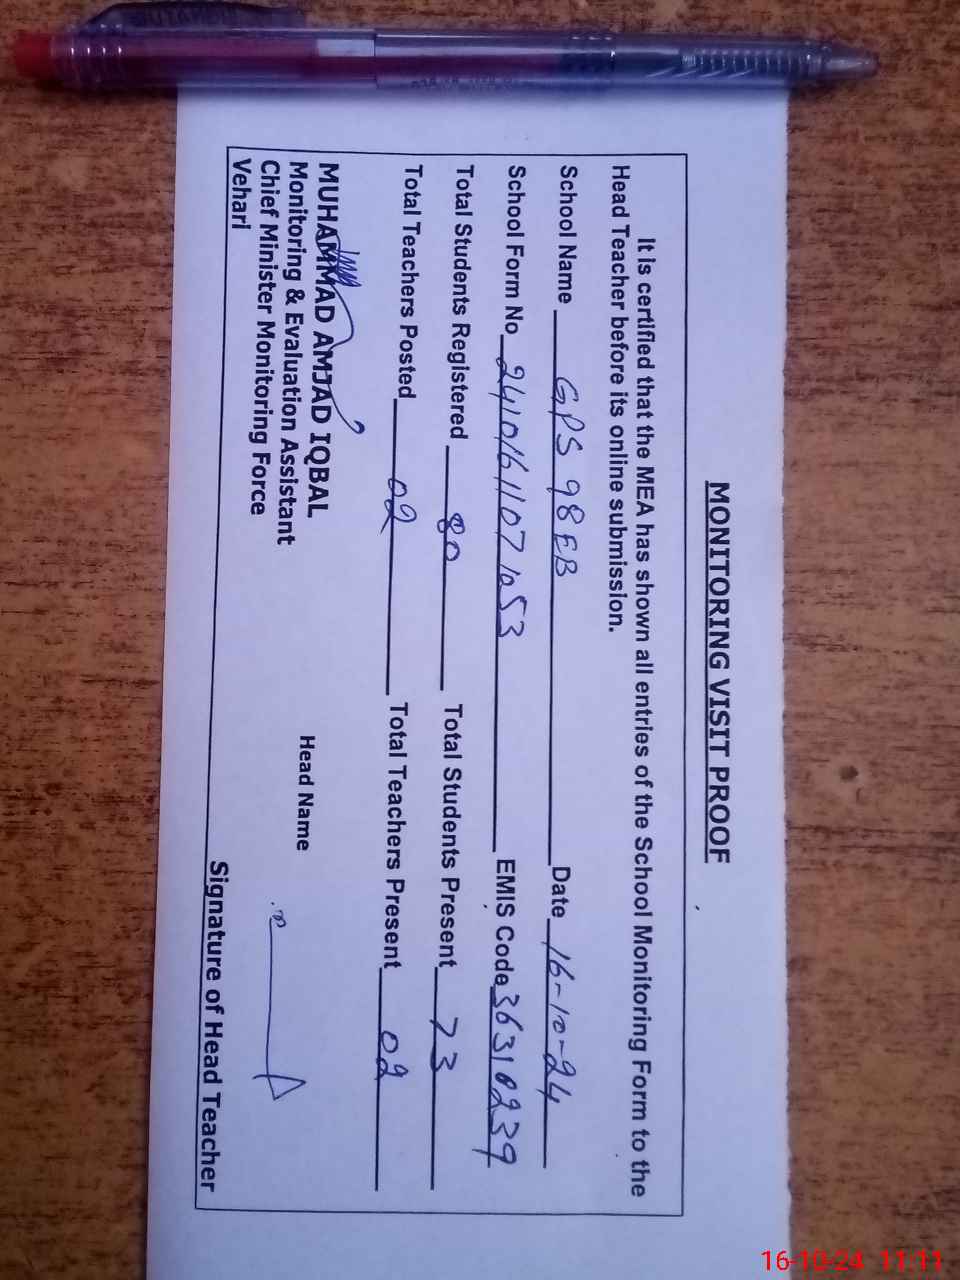 MONITORING VISIT PROOF
It is certified that the MEA has shown all entries of the School Monitoring Form to the
Head Teacher before its online submission.
School Name GPS 98EB Date 16-10-24
School Form No 24101611071053 EMIS Code 36310239
Total Students Registered 80 Total Students Present 73
Total Teachers Posted 02 Total Teachers Present 02
MUHAMMAD AMJAD IQBAL
Monitoring & Evaluation Assistant
Chief Minister Monitoring Force
Vehari
Head Name
Signature of Head Teacher
16-10-24 11:11